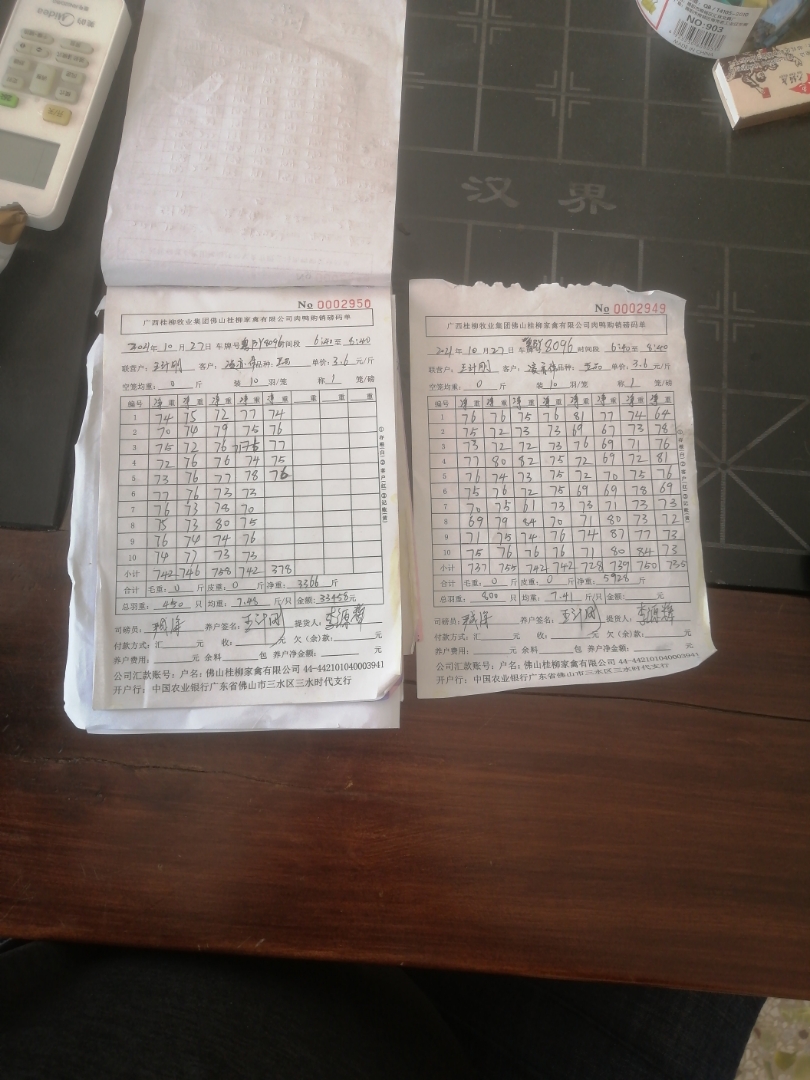 美的 Midea
NO:903
汉界
No 0002950
广西桂柳牧业集团佛山桂柳家禽有限公司肉鸭购销磅码单
2021年10月27日 车牌号 8096 时间段 6:40至8:40
联营户: 王计刚 客户: 品种: 单价: 3.6 元/斤
空笼均重: 0 斤 装 10 羽/笼 称 1 笼/磅
编号 净重 净重 净重 净重 净重 重 重 重
1 74 75 72 77 74
2 70 74 79 75 76
3 75 72 76 75 77
4 72 76 76 74 75
5 73 76 77 78 76
6 77 76 73 73
7 76 73 78 70
8 75 73 80 75
9 76 74 74 76
10 74 77 73 73
小计 742 746 758 742 378
合计 毛重: 0 斤 皮重: 0 斤 净重: 3366 斤
总羽重: 450 只 均重: 7.48 斤/只 金额: 33458元
司磅员: 养户签名: 王计刚 提货人: 李源辉
付款方式: 汇 元 收: 元 欠(余)款: 元
养户费用: 元 余料 包 养户净金额: 元
公司汇款账号: 户名: 佛山桂柳家禽有限公司 44-442101040003941
开户行: 中国农业银行广东省佛山市三水区三水时代支行
No 0002949
广西桂柳牧业集团佛山桂柳家禽有限公司肉鸭购销磅码单
2021年10月27日 车牌号 8096 时间段 6:40至8:40
联营户: 王计刚 客户: 品种: 单价: 3.6 元/斤
空笼均重: 0 斤 装 10 羽/笼 称 1 笼/磅
编号 净重 净重 净重 净重 净重 净重 净重 净重
1 76 76 75 76 81 77 74 64
2 75 72 73 73 69 67 73 78
3 73 72 72 73 76 69 71 76
4 77 80 82 75 72 69 72 81
5 76 74 73 75 72 70 75 76
6 75 76 72 75 69 69 78 69
7 70 75 61 73 73 71 73 73
8 69 79 84 70 71 80 73 72
9 71 75 74 76 74 87 77 73
10 75 76 76 76 71 80 84 73
小计 737 755 742 742 728 739 750 735
合计 毛重: 0 斤 皮重: 0 斤 净重: 5928 斤
总羽重: 800 只 均重: 7.41 斤/只 金额: 元
司磅员: 养户签名: 王计刚 提货人: 李源辉
付款方式: 汇 元 收: 元 欠(余)款: 元
养户费用: 元 余料 包 养户净金额: 元
公司汇款账号: 户名: 佛山桂柳家禽有限公司 44-442101040003941
开户行: 中国农业银行广东省佛山市三水区三水时代支行